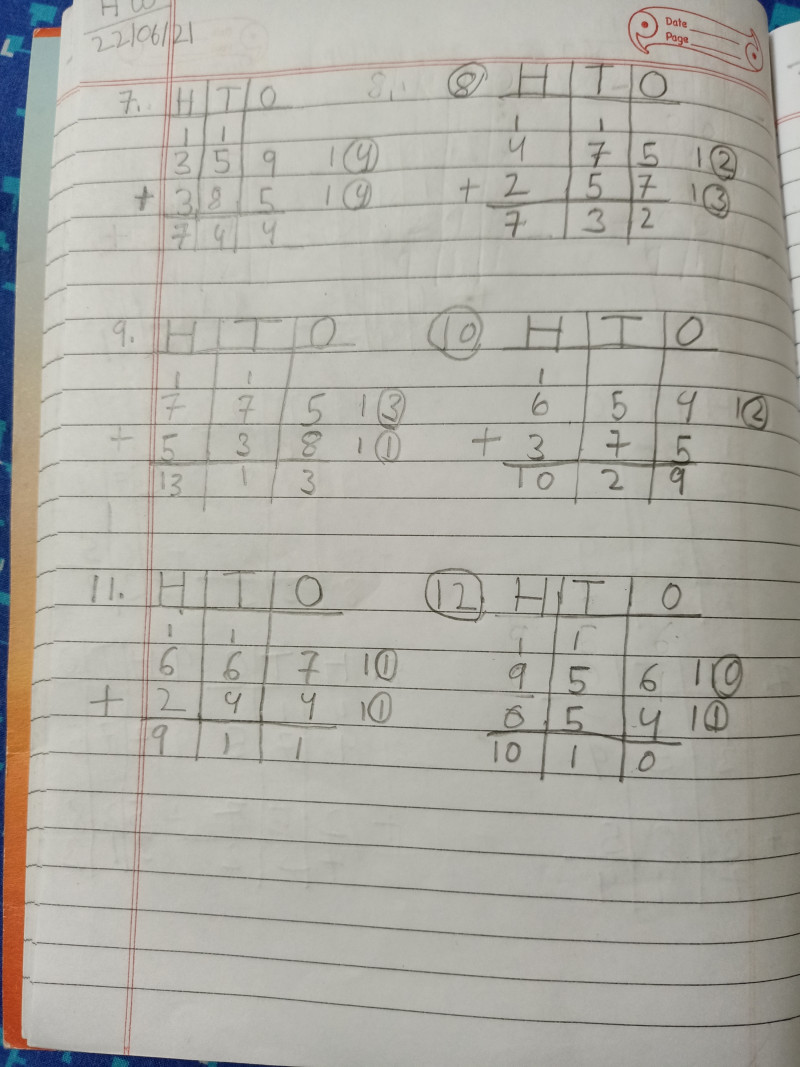 HW
22/06/21
Date
Page
7. H T O
1 1
3 5 9 1 4
+ 3 8 5 1 4
7 4 4
8. 8 H T O
1 1
4 7 5 1 2
+ 2 5 7 1 3
7 3 2
9. H T O
1 1
7 7 5 1 3
+ 5 3 8 1 1
13 1 3
10 H T O
1
6 5 4 1 2
+ 3 7 5
10 2 9
11. H T O
1 1
6 6 7 1 1
+ 2 4 4 1 1
9 1 1
12 H T O
1 1
9 5 6 1 0
0 5 4 1 1
10 1 0